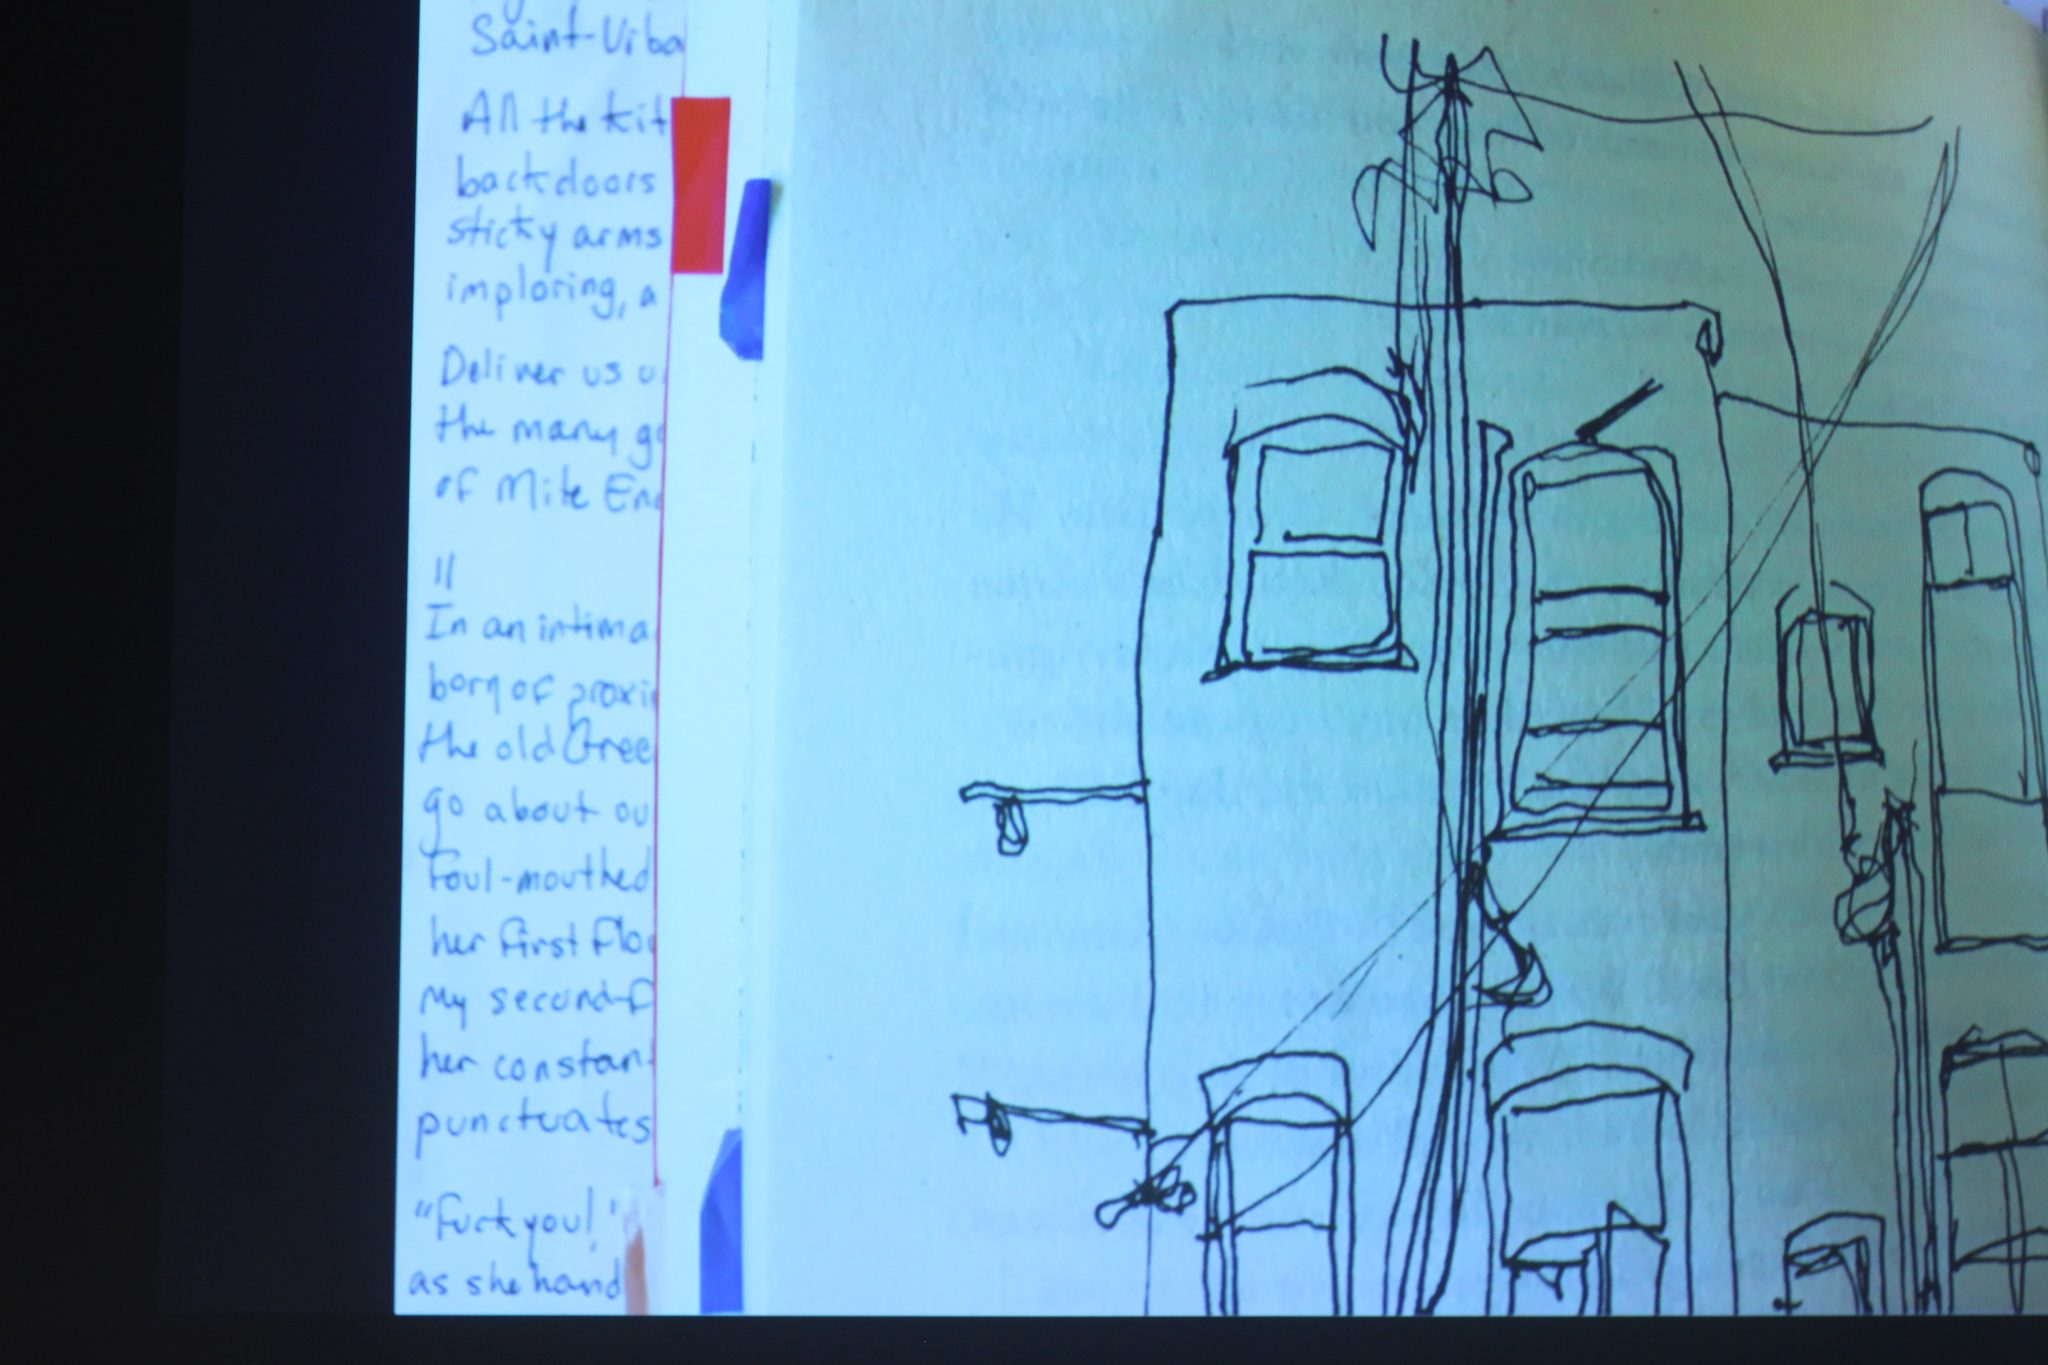 Saint-Urba
All the kit
backdoors
sticky arms
imploring, a
Deliver us u
the many go
of Mile End
11
In an intima
born of proxi
the old Gree
go about ou
Foul-mouthed
her first floo
My second-f
her constan
punctuates
"Fuck you!"
as she hand